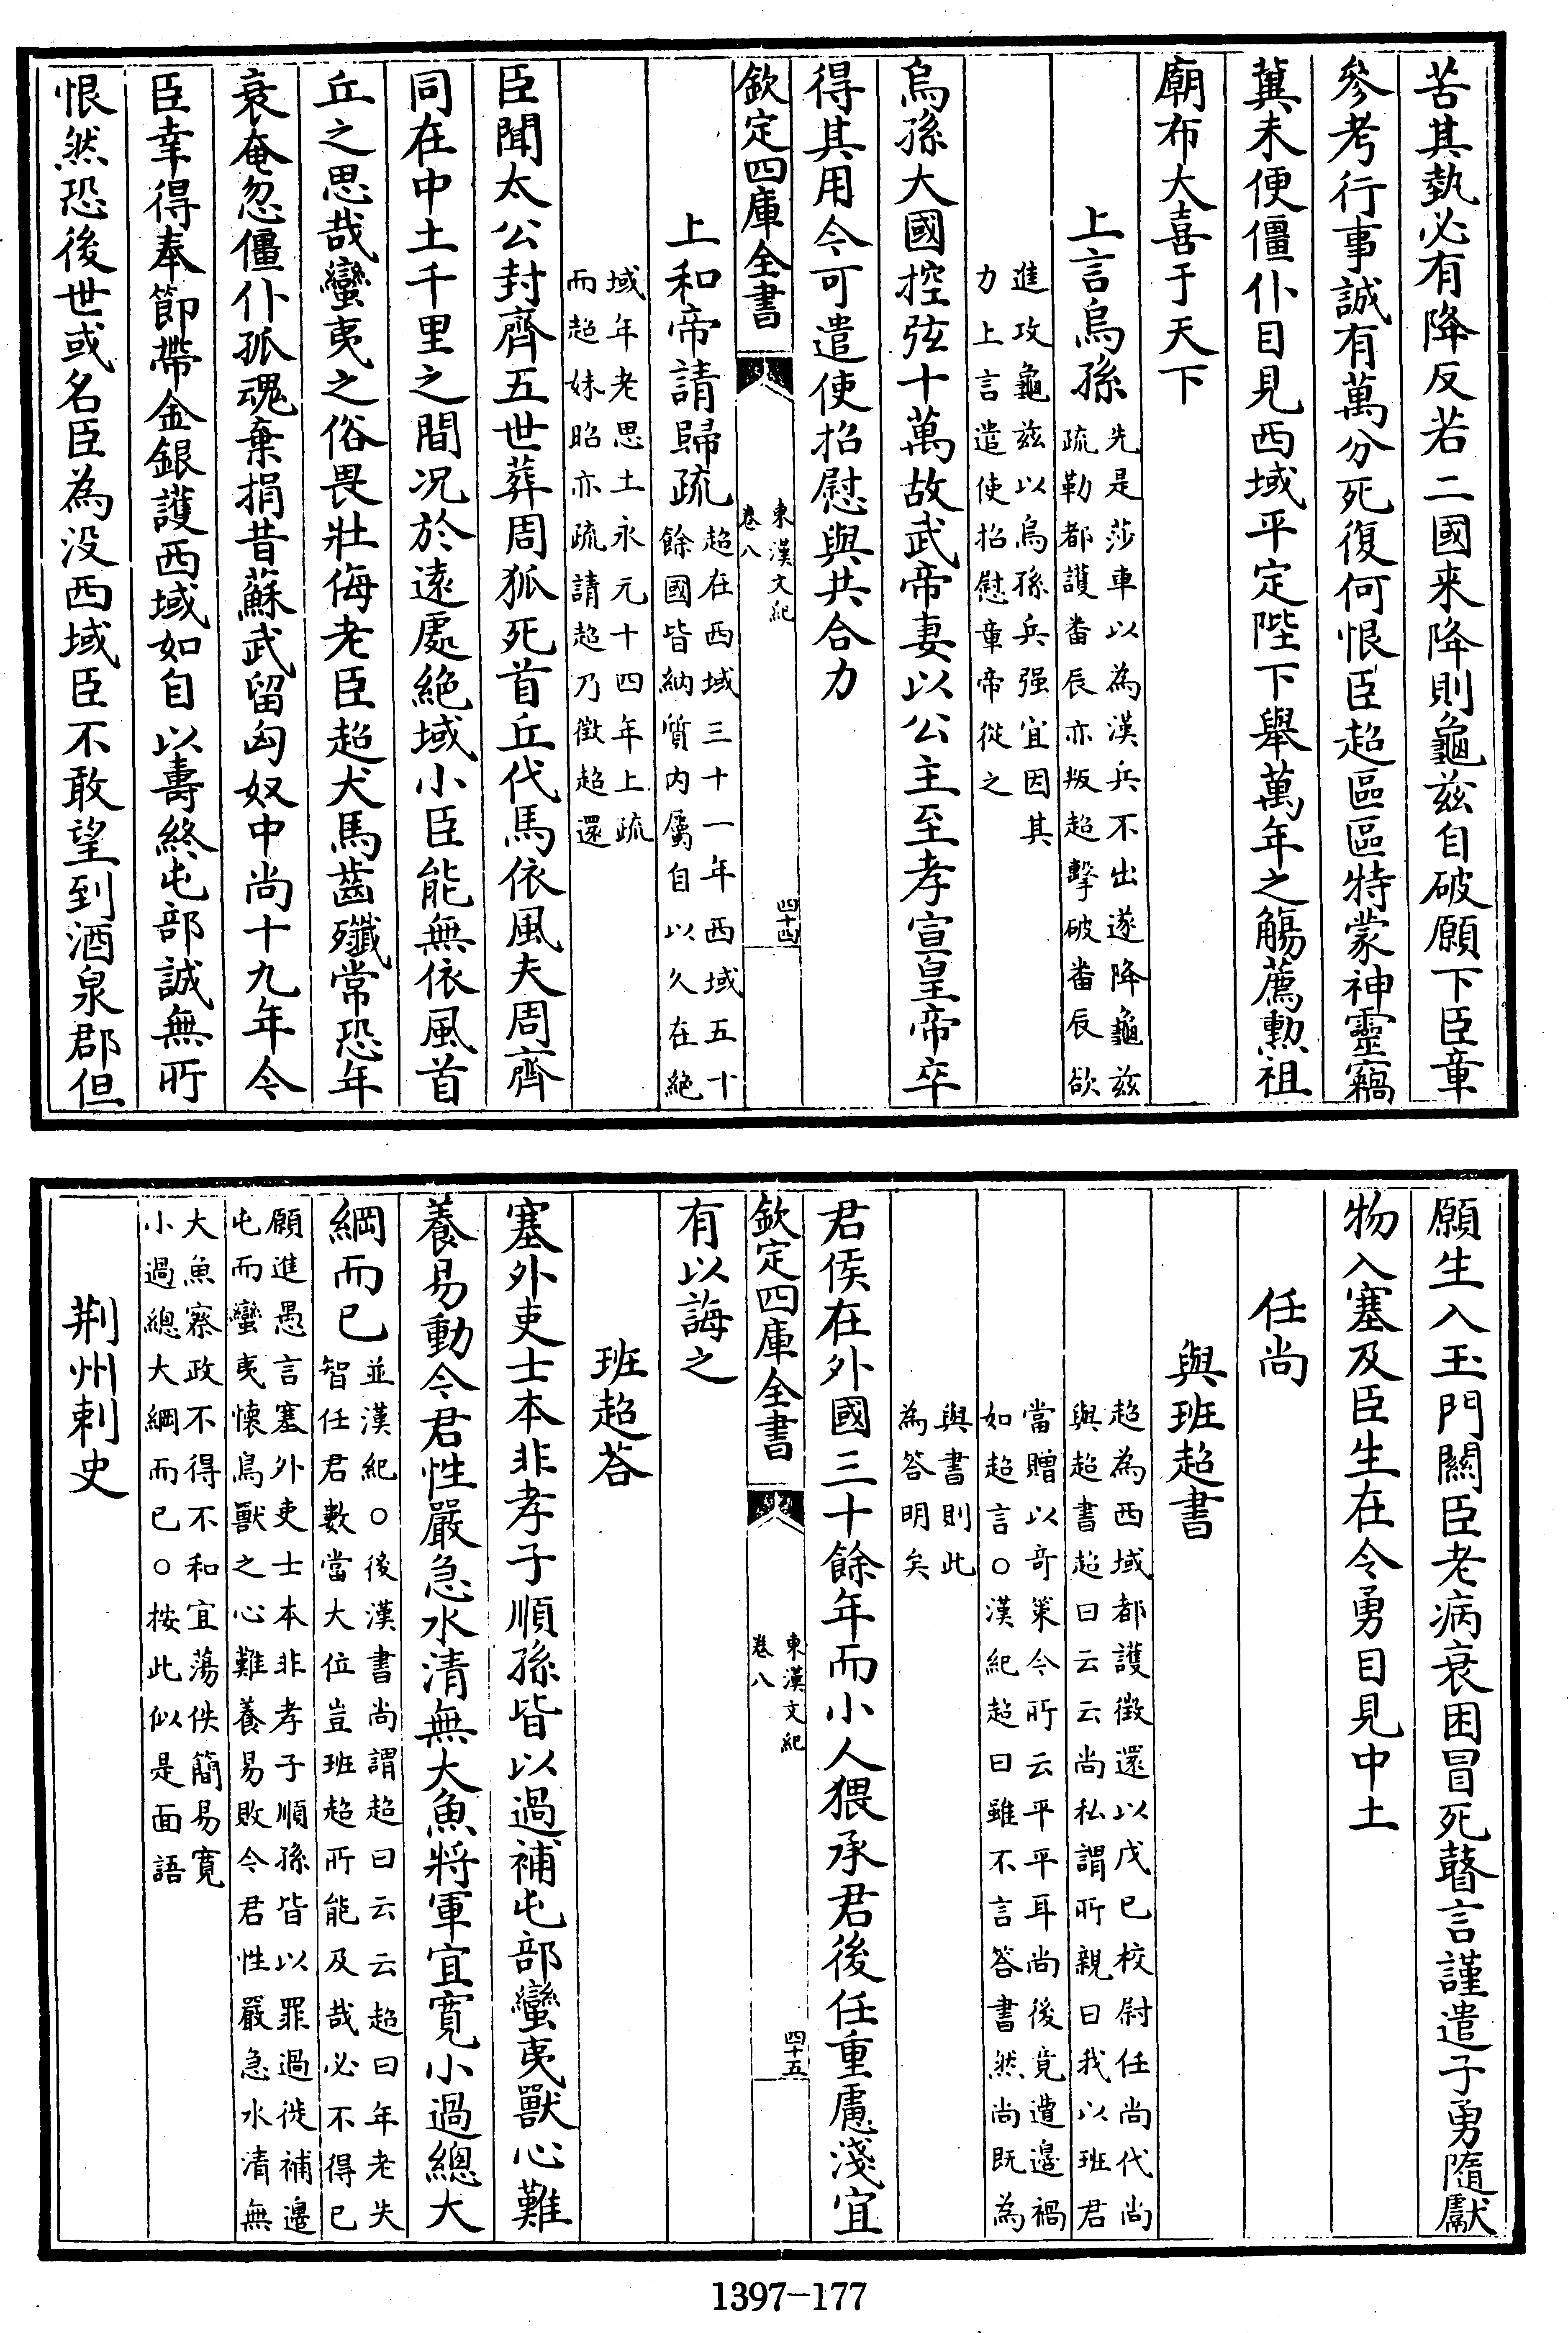 苦其埶必有降反若二國来降則龜兹自破願下臣章
參考行事誠有萬分死復何恨臣超區區特蒙神靈竊
冀未便僵仆目見西域平定陛下舉萬年之觴薦勲祖
廟布大喜于天下
上言烏孫
先是莎車以為漢兵不出遂降龜兹
疏勒都護番辰亦叛超擊破番辰欲
進攻龜兹以烏孫兵强宜因其
力上言遣使招慰章帝從之
烏孫大國控弦十萬故武帝妻以公主至孝宣皇帝卒
得其用今可遣使招慰與共合力
欽定四庫全書
東漢文紀
卷八
四十四
上和帝請歸疏
超在西域三十一年西域五十
餘國皆納質内屬自以久在絶
域年老思土永元十四年上疏
而超妹昭亦疏請超乃徴超還
臣聞太公封齊五世葬周狐死首丘代馬依風夫周齊
同在中土千里之間况於逺處絶域小臣能無依風首
丘之思哉蠻夷之俗畏壯侮老臣超犬馬齒殲常恐年
衰奄忽僵仆孤魂棄捐昔蘇武留匈奴中尚十九年今
臣幸得奉節帶金銀護西域如自以壽終屯部誠無所
恨然恐後世或名臣為没西域臣不敢望到酒泉郡但
願生入玉門關臣老病衰困冒死瞽言謹遣子勇隨獻
物入塞及臣生在令勇目見中土
任尚
與班超書
超為西域都護徴還以戊已校尉任尚代尚
與超書超曰云云尚私謂所親曰我以班君
當贈以竒策今所云平平耳尚後竟遭邉禍
如超言○漢紀超曰雖不言答書然尚既為
與書則此
為答明矣
君侯在外國三十餘年而小人猥承君後任重慮淺宜
欽定四庫全書
東漢文紀
卷八
四十五
有以誨之
班超荅
塞外吏士本非孝子順孫皆以過補屯部蠻夷獸心難
養易動今君性嚴急水清無大魚將軍宜寛小過總大
綱而已
並漢紀○後漢書尚謂超曰云云超曰年老失
智任君數當大位豈班超所能及哉必不得已
願進愚言塞外吏士本非孝子順孫皆以罪過徙補邉
屯而蠻夷懐鳥獸之心難養易敗今君性嚴急水清無
大魚察政不得不和宜蕩佚簡易寛
小過總大綱而已○按此似是面語
荆州刺史
1397-177